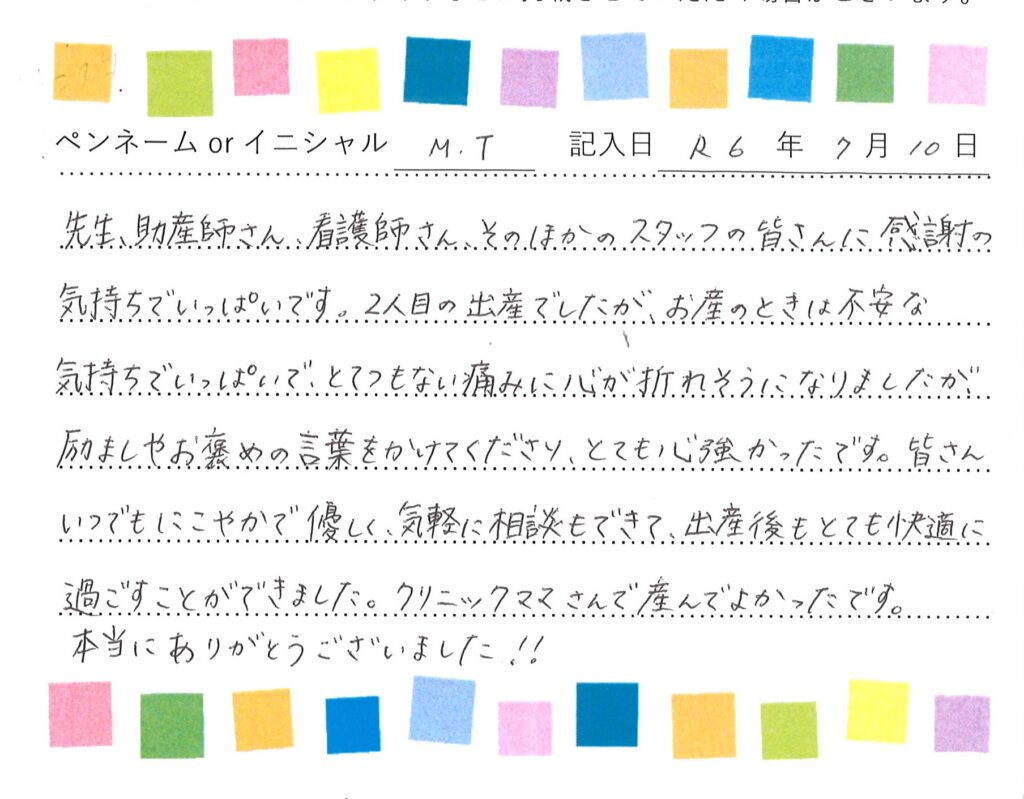 ペンネーム or イニシャル M.T 記入日 R6年7月10日
先生、助産師さん、看護師さん、そのほかのスタッフの皆さんに感謝の
気持ちでいっぱいです。2人目の出産でしたが、お産のときは不安な
気持ちでいっぱいで、とてつもない痛みに心が折れそうになりましたが、
励ましやお褒めの言葉をかけてくださり、とても心強かったです。皆さん
いつでもにこやかで優しく、気軽に相談もできて、出産後もとても快適に
過ごすことができました。クリニックママさんで産んでよかったです。
本当にありがとうございました!!